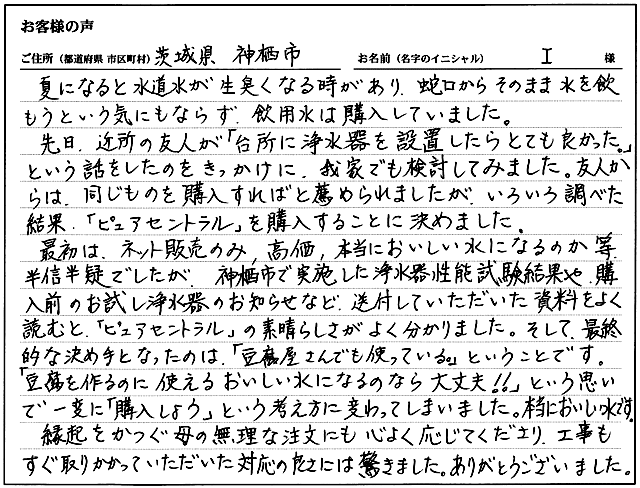 お客様の声
ご住所（都道府県 市区町村）茨城県 神栖市 お名前（名字のイニシャル） I 様
夏になると水道水が生臭くなる時があり、蛇口からそのまま水を飲
もうという気にもならず、飲用水は購入していました。
先日、近所の友人が「台所に浄水器を設置したらとても良かった。」
という話をしたのをきっかけに、我家でも検討してみました。友人か
らは、同じものを購入すればと薦められましたが、いろいろ調べた
結果、「ピュアセントラル」を購入することに決めました。
最初は、ネット販売のみ、高価、本当においしい水になるのか等
半信半疑でしたが、神栖市で実施した浄水器性能試験結果や、購
入前のお試し浄水器のお知らせなど、送付していただいた資料をよく
読むと、「ピュアセントラル」の素晴らしさがよく分かりました。そして、最終
的な決め手となったのは、「豆腐屋さんでも使っている。」ということです。
「豆腐を作るのに使えるおいしい水になるのなら大丈夫!!」という思い
で一変に「購入しよう」という考え方に変わってしまいました。本当においしい水です。
縁起をかつぐ母の無理な注文にも心よく応じてくださり、工事も
すぐ取りかかっていただいた対応の良さには驚きました。ありがとうございました。